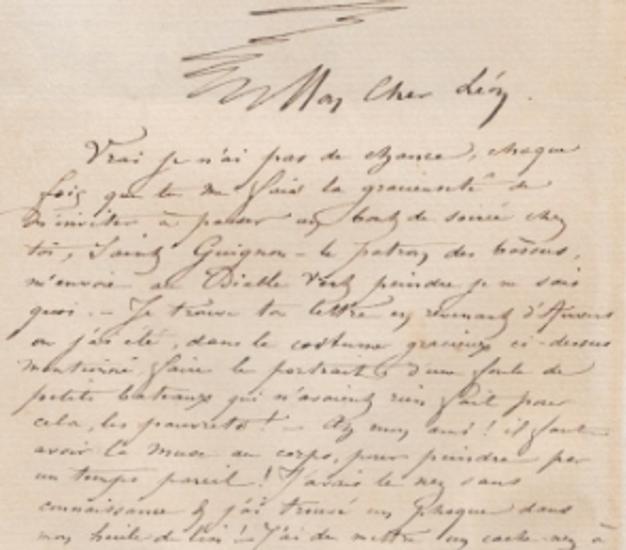 Mon Cher Léon.
Vrai je n'ai pas de chance, chaque
fois que tu me fais la gracieuseté de
m'inviter à passer un bout de soirée chez
toi, Saint Guignon - le patron des
m'envoie au Diable Vert peindre je ne sais
quoi. - Je trouve ta lettre en revenant d'Anvers
ou j'ai été, dans le costume gracieux ci-dessus
mentionné faire le portrait d'une foule de
petits bateaux qui n'avaient rien fait pour
cela, les pauvrets! - Ah mon ami! il faut
avoir la muse au corps, pour peindre par
un temps pareil! J'avais le nez sans
connaissance & j'ai trouvé un phoque dans
mon huile de lin! - J'ai du mettre un cache-nez à